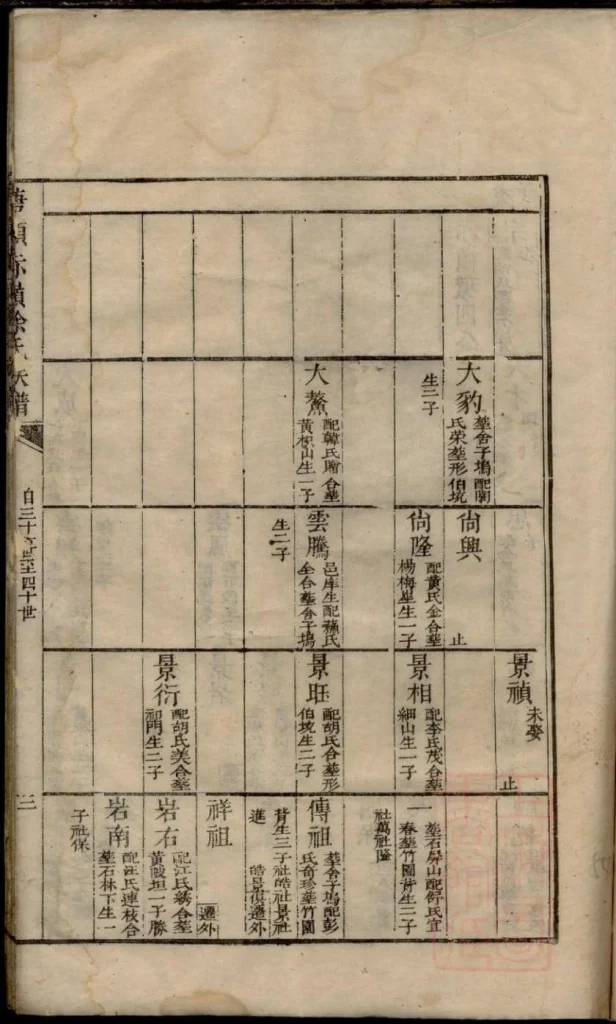 大豹
葬舍子塢配關
氏荣葬形伯坑
生二子
大鰲
配韓氏贈合葬
黃山生一子
尙興
止
尙隆
配黃氏金合葬
楊梅生一子
雲騰
邑庠生配氏
合葬舍子塢
生二子
景禎
未娶
止
景相
配李氏茂合葬
細山生一子
景旺
配胡氏合葬形
伯坑生二子
景衍
配胡氏美合葬
祁門生二子
一
葬石屏山配舒氏宜
春葬竹園背生二子
社萬社隆
傳祖
葬舍子塢配彭
氏奇珍葬竹園
背生三子社皓社景社
進
皓景俱遷外
祥祖
遷外
岩右
配江氏綉合葬
黃陂坦一子勝
岩南
配汪氏連枝合
葬石林下生一
子社保
徐氏族譜
自三十世至四十世
三